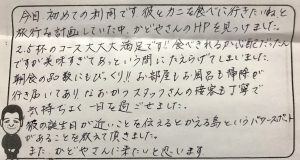 今日、初めての利用です。彼とカニを食べに行きたいねと
旅行を計画していた中、かどやさんのHPを見つけました。
2.5杯のコース大大大満足です!!食べきれるか心配だったん
ですが美味すぎてあっという間にたえらげてしまいました。
朝食の品数にもびっくり!!お部屋もお風呂も掃除が
行き届いてありなおかつスタッフさんの接客も丁寧で
気持ちよく一日を過ごせました。
彼の誕生日が近いことを伝えるとかえる島というパワースポット
があることを教えて頂きました。
また、かどやさんに来たいと思います